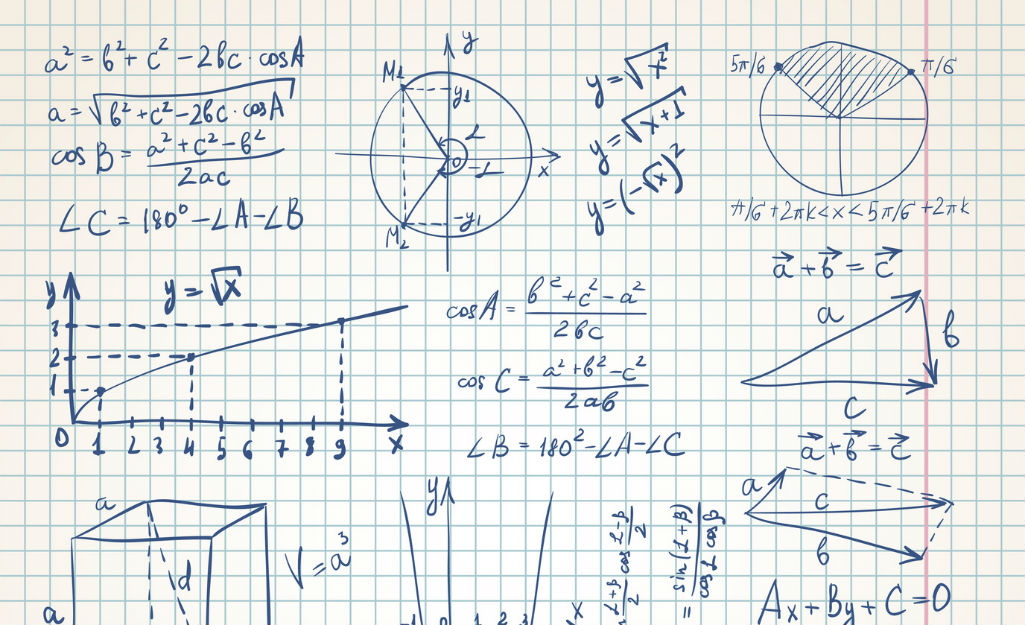 a² = b² + c² − 2bc · cosA
a = √(b² + c² − 2bc · cosA)
cos B = (a² + c² − b²) / 2ac
∠C = 180° − ∠A − ∠B
y
M₁
y₁
α
0
−α
x
−y₁
M₂
y = √x²
y = √(x+1)
y = (−√x)²
5π/6
π/6
π/6 + 2πk < x < 5π/6 + 2πk
a⃗ + b⃗ = c⃗
a
b
c
y
y = √x
3
2
1
0 1 2 3 4 5 6 7 8 9 x
cosA = (b² + c² − a²) / 2bc
cos C = (a² + b² − c²) / 2ab
∠B = 180² − ∠A − ∠C
a⃗ + b⃗ = c⃗
a
c
b
a
d
a
V = a³
y
−1 0 1 2 3
x
(α+β)/2 cos (α−β)/2
= sin(α+β) / cosα cosβ
Ax + By + C = 0